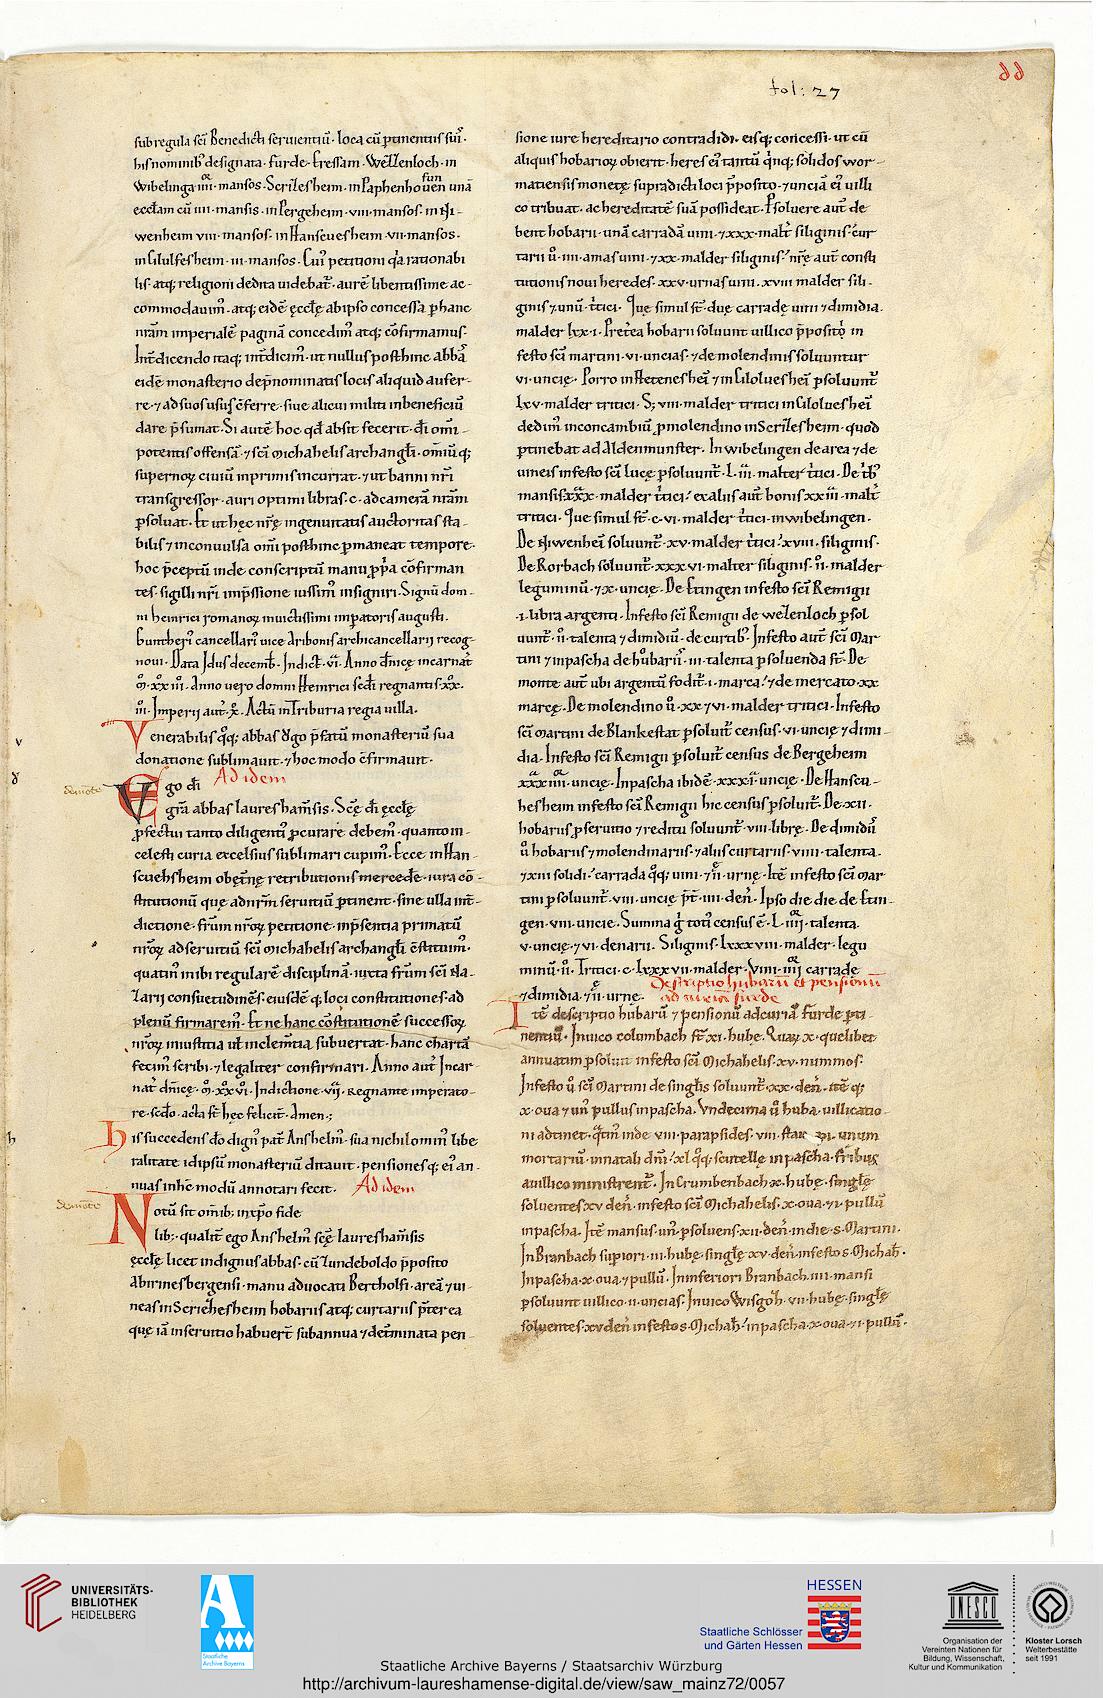 fol: 27
sub regula sc̄i Benedicti seruientiū· loca cū ꝑtinentiis sui᷒·
his nominib᷒ designata· furde· Eressam· Wezzenloch· in
Wibelinga iiii· mansos· Scrizesheim· in Paphenhouen unā
eccłam cū iiii· mansis· in Pergeheim· viii· mansos· in Ni-
wenheim viii· mansos· in Hanscuesheim· vii· mansos·
in Gilulfesheim· iii· mansos· Cui᷒ petitioni q̇a rationabi
lis· atq; religioni dedita uidebat᷒· aurē libentissime ac-
commodauim᷒· atq; eidē ęccłę ab ipso concessa ꝑ hanc
nr̄am imperialē paginā concedim᷒ atq; cōfirmamus·
Int̄dicendo itaq; int̄dicim᷒· ut nullus posthinc abbā
eidē monasterio de p̄nominatis locis aliquid aufer-
re· ⁊ ad suos usus ꝯferre· siue alicui militi in beneficiū
dare p̄sumat· Si autē hoc qđ absit fecerit· dī om̄i-
potentis offensā· ⁊ sc̄i Michahelis archangłi· om̄iū q;
supernoꝝ ciuiū in primis incurrat· ⁊ ut banni nr̄i
transgressor· auri optimi libras· c· ad camerā nr̄am
ꝑsoluat· Et ut hęc nr̄ę ingenuitatis auctoritas sta-
bilis ⁊ inconuulsa om̄i posthinc ꝑmaneat tempore·
hoc p̄ceptū inde conscriptū manu ꝓp̄a cōfirman
tes· sigilli nr̄i imp̄ssione iussim᷒ insigniri· Signū dom-
ni heinrici romanoꝝ inuictissimi imꝑatoris augusti·
Guntheri᷒ cancellari᷒ uice Aribonis archicancellarii recog-
noui· Data Idus decemb̄· Indict̄· vi· Anno dn̄icę incarnat̄
M̄· xx iii· Anno uero domni Heinrici sc̄di regnantis xx·
iii· Imperii aut̄· x̄· Actū in Triburia regia uilla·
Venerabilis q̊q; abbas hͦgo p̄fatū monasteriū sua
donatione sublimauit· ⁊ hoc modo ꝯfirmauit·
Ad idem
Ego dī
gr̄a abbas laureshām̄sis· Scę̄ dī ęccłę
ꝓfectui tanto diligenti᷒ ꝓcurare debem᷒· quanto in
celesti curia excelsius sublimari cupim᷒· Ecce in Han-
scuehsheim obętn̄ę retributionis mercedē· iura cō-
stitutionū quę ad nr̄m seruitiū ꝑtinent· sine ulla int̄-
dictione· fr̄um nr̄oꝝ petitione· in p̄sentia primatū
nr̄oꝝ ad seruitiū sc̄i Michahelis archangłi ꝯstituim᷒·
quatin᷒ inibi regularē disciplinā· iuxta fr̄um sc̄i Na-
zarii consuetudinē· eiusdē q; loci constitutiones· ad
plenū firmarem᷒· Et ne hanc cōstitutionē successoꝝ
nr̄oꝝ iniustitia uł inclem̄tia subuertat· hanc chartā
fecim᷒ scribi· ⁊ legaliter confirmari· Anno aut̄ Incar-
nat̄ dn̄icę· M̄· xx vi· Indictione· vij· Regnante imperato-
re· sc̄do· acta st̄ hęc felicit̄· Amen·;
His succedens dō dign᷒ pat̄ Anshelm᷒· sua nichilomin᷒ libe
ralitate id ipsū monasteriū ditauit· pensiones q; ei᷒ an-
nuas in hc̄ modū annotari fecit·
Ad idem
Notū sit om̄ib; in xp̄o fide
lib;· qualit̄ ego Anshelm᷒ scę̄ laureshām̄sis
ęccłę licet indignus abbas· cū Zundeboldo p̄posito
Abirinesbergensi· manu aduocati Bertholfi· areā ⁊ ui-
neas in Scriezhesheim hobariis atq; curtariis p̄ter ea
quę iā in seruitio habuer̄t sub annua ⁊ det̄minata pen-
sione iure hereditario contradidi· eisq; concessi· ut cū
aliquis hobarioꝝ obierit· heres ei᷒ tantū q̇nq; solidos wor-
matiensis monetę supradicti loci p̄posito· ⁊ unciā ei᷒ uilli
co tribuat· ac hereditatē suā possideat· Ꝑsoluere aut̄ de
bent hobarii· unā carradā uini· ⁊ xxx· malt̄ siliginis· Cur
tarii ů· iiii· amas uini· ⁊ xx· malder siliginis· nr̄ę aut̄ consti
tutionis noui heredes· xxv· urnas uini· xviii malder sili-
ginis ⁊ unū· t̄tici· Quę simul st̄· duę carradę uini ⁊ dimidia·
malder lxx·i· Pret̄ea hobarii soluunt uillico p̄positi in
festo sc̄i martini· vi· uncias· ⁊ de molendinis soluuntur
vi· uncię· Porro in Hetenesheī ⁊ in Gilolueshei ꝑsoluunt᷒
lxv· malder tritici· S; viii· malder tritici in Gilolueshei
dedim᷒ in concambiū ꝓ molendino in Scrizesheim· quod
ꝑtinebat ad Aldenmunster· In wibelingen de area ⁊ de
uineis in festo sc̄i lucę ꝑsoluunt᷒· L· iii· malter t̄tici· De tb᷒
mansis xxx· malder t̄tici· ex aliis aut̄ bonis xx iiii· malt̄
tritici· Quę simul st̄· c· vi· malder t̄tici· in wibelingen·
De Niwenhei soluunt᷒· xv· malder t̄tici· xviii· siliginis·
De Rorbach soluunt᷒· xxx vi· malter siliginis· ii· malder
leguminū· ⁊ x· uncię· De Etingen in festo sc̄i Remigii
·i· libra argenti· In festo sc̄i Remigii de wezenloch ꝑsol
uunt᷒· ii· talenta ⁊ dimidiū· de curtib᷒· In festo aut̄ sc̄i Mar
tini ⁊ in pascha de hůbariis· iii· talenta ꝑsoluenda st̄· De
monte aut̄ ubi argentū fodit᷒· i· marca· ⁊ de mercato· xx
marcę· De molendino ů· xx ⁊ vi· malder tritici· In festo
sc̄i martini de Blankestat ꝑsoluit᷒ census· vi· uncię ⁊ dimi-
dia· In festo sc̄i Remigii ꝑsoluit᷒ census de Bergeheim
xxx iiii· uncię· In pascha ibidē· xxxi· uncię· De Hanscu-
hesheim in festo sc̄i Remigii hic census ꝑsoluit᷒· De xii·
hobariis ꝑ seruitio ⁊ reditu soluunt᷒· viii· librę· De dimidiis
ů hobariis ⁊ molendinariis· ⁊ aliis curtariis· viiii· talenta·
⁊ xiii solidi· carrada q̊q; uini· ⁊ ii· urnę· Itē in festo sc̄i mar
tini ꝑsoluunt᷒· viii· uncię p̄t̄· iiii· den̄· Ipso die de Etin-
gen· viii· uncię· Summa ġ toti᷒ census ē· L· iiii· talenta·
v· uncię· ⁊ vi· denarii· Siliginis· lxxxviii· malder· legu
minū· ii· Tritici· c· lxxxvii· malder· Vini· iiij carrade
⁊ dimidia· ⁊ ii· urnę·
Descriptio hubarū et pensionū
ad curiā furde
Itē descriptio hubarū ⁊ pensionū ad curiā furde ꝑti-
nentiū· In uico columbach st̄· xi· hubę· Quaꝝ x· quelibet
annuatim ꝑsoluit in festo sc̄i Michahelis· xv· nummos·
In festo ů sc̄i Martini de singłis soluunt᷒· xx· den̄· itē q;
x· oua ⁊ un᷒ pullus in pascha· Vndecima ů huba· uillicatio-
ni adtinet· q̇tin᷒ inde viii· parapsides· viii· unum
mortariū· in natali dn̄i· xl q̊q; scutellę in pascha· fr̄ibus
a uillico ministrent᷒· In Crumbenbach· x· hubę· singłę
soluentes xv den̄· in festo sc̄i Michahelis· x· oua· ⁊ i· pullū
in pascha· Itē mansus· un᷒· ꝑsoluens· xii· den̄· in die· s· Martini·
In Branbach supiori· iii· hubę· singłę xv· den̄· in festo s· Michah̄·
In pascha· x· oua· ⁊ pullū· In inferiori Branbach· iiii· mansi
ꝑsoluunt uillico· ii· uncias· In uico Wisgoh· vii· hubę· singłę
soluentes· xv den̄ in festo s· Michah̄· in pascha· x· oua· ⁊ i· pullū·
UNIVERSITÄTS-
BIBLIOTHEK
HEIDELBERG
Staatliche
Archive Bayerns
HESSEN
Staatliche Schlösser
und Gärten Hessen
UNESCO
Organisation der
Vereinten Nationen für
Bildung, Wissenschaft,
Kultur und Kommunikation
Kloster Lorsch
Welterbestätte
seit 1991
Staatliche Archive Bayerns / Staatsarchiv Würzburg
http://archivum-laureshamense-digital.de/view/saw_mainz72/0057